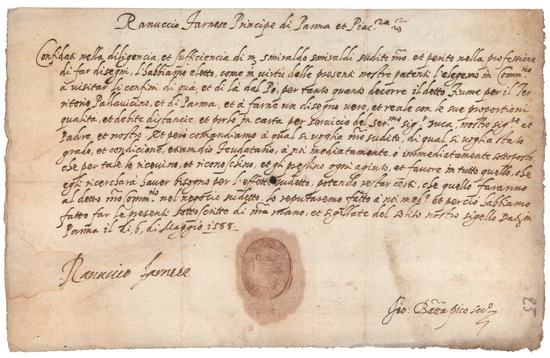 Ranuccio Farnese Principe di Parma et Piac.za
Confidati nella diligencia, et sufficiencia di m Smiraldo Smiraldi sudito nro. et perito nella professione
di far disegni, l'habbiamo eletto, come in virtù delle presenti nostre patenti l'elegemo in Comm.rio
à visitar li confini di quà, et di là dal Pò, per tanto quanto decorre il detto fiume per il Ter
ritorio Pallavicino, et di Parma, et à farne un disegno vero, et reale con le sue proportioni
qualità, et debite distancie, et porlo in carta per servicio del Ser.mo Sig.r Duca, nostro Sig.re et
Padre, et nostro. Et però comandiamo à qual si voglia nro sudito, di qual si voglia stato
grado, et conditione, et anco feudatario, à noi mediatamente, o immediatamente sottoposto
che per tale lo ricevino, et riconoschino, et gli prestino ogni agiuto, et favore in tutto quello, che
egli ricercherà haver bisogno per l'effetto sudetto, potendo restar certi, che quello faranno
al detto nro, nel negocio sudetto, lo reputaremo fatto à noi mes.i et perciò habbiamo
fatto far le presenti sottoscritte di nra mano, et sigillate del solito nostro sigello Dat. in
Parma il di, 6, di Maggio 1588.
Ranuccio Farnese
Gio: Batta pico sec.o
25